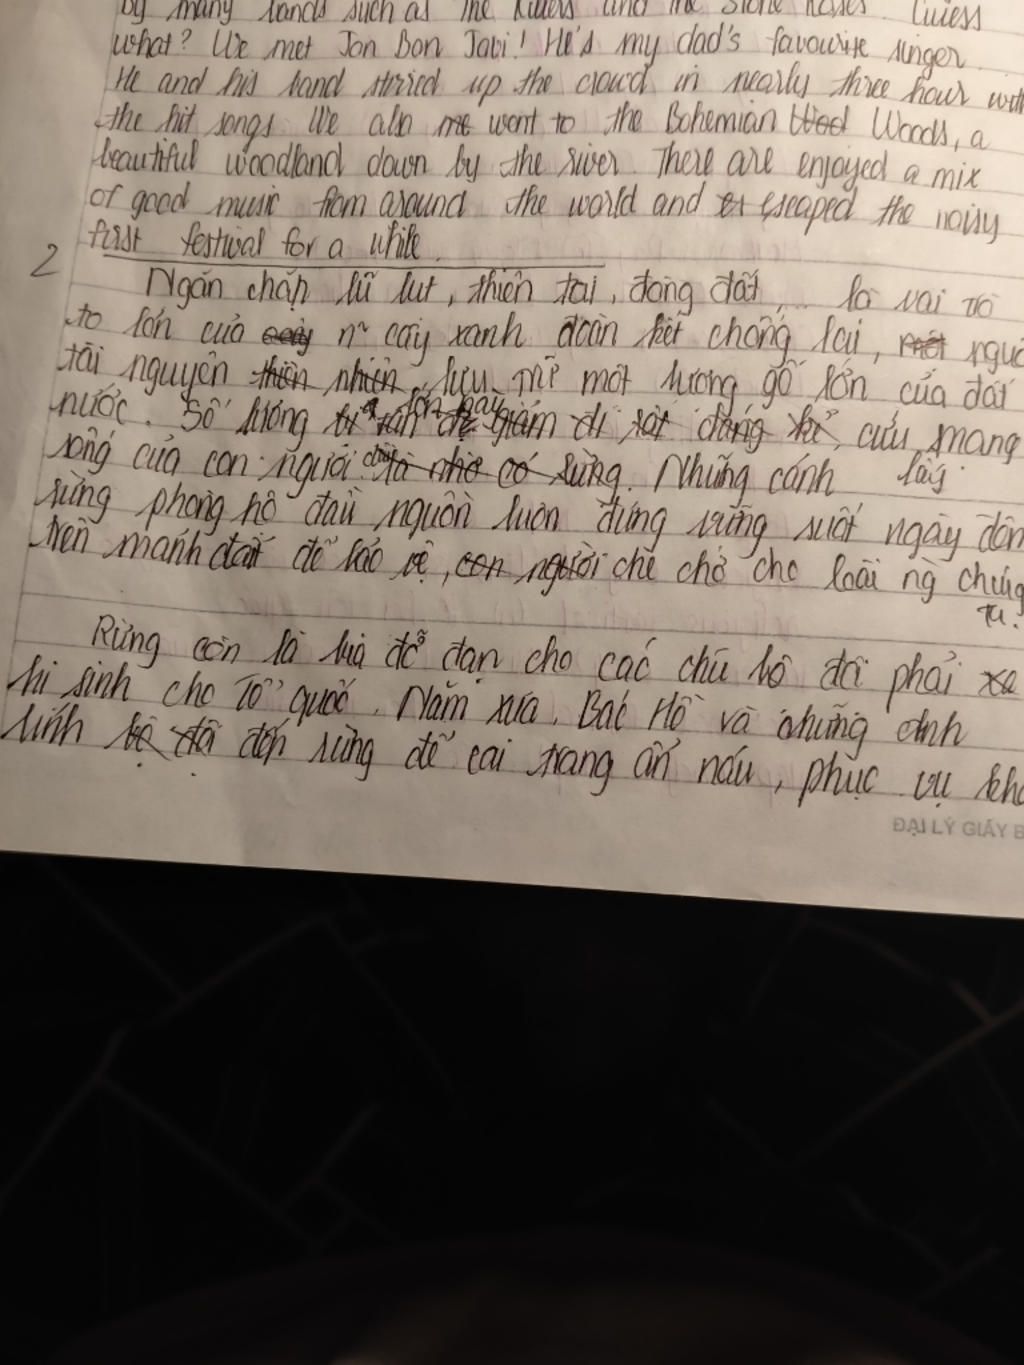 by many bands such as The Killers and The Stone Roses. Guess
what? We met Jon Bon Jovi! He's my dad's favourite singer.
He and his band stirred up the crowd in nearly three hour with
the hit songs We also went to the Bohemian Woods, a
beautiful woodland down by the river. There are enjoyed a mix
of good music from around the world and escaped the noisy
first festival for a while.
2
Ngăn chặn lũ lụt, thiên tai, động đất, ... là vai trò
to lớn của n~ cây xanh đoàn kết chống lại,
tài nguyên lưu trữ một lượng gỗ lớn của đất
nước. Số lượng cưu mang
sống của con người. Những cánh
rừng phòng hộ đầu nguồn luôn đứng vững suốt ngày đêm
trên mảnh đất để bảo vệ, che chở cho loài ng chúng
ta.
Rừng còn là bia đỡ đạn cho các chú bộ đội phải
hi sinh cho Tổ quốc. Năm xưa, Bác Hồ và những anh
lính đến rừng để cải trang ẩn náu, phục vụ
ĐẠI LÝ GIẤY B